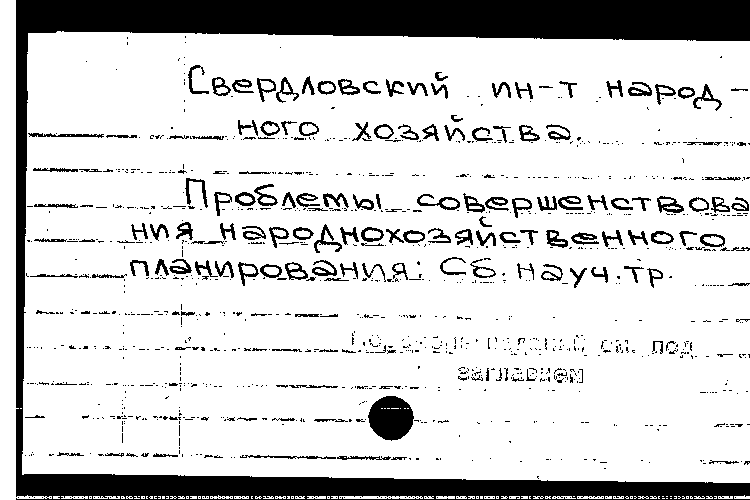 Свердловский ин-т народ-
ного хозяйства.
Проблемы совершенствова
ния народнохозяйственного
планирования: Сб. науч. тр.
см. под
заглавием